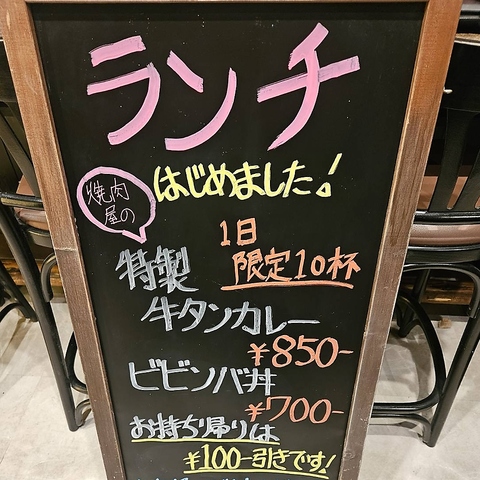 ランチ
はじめました!
焼肉
屋の
1日
限定10杯
特製
牛タンカレー
¥850-
ビビンバ丼
¥700-
お持ち帰りは
¥100-引きです!